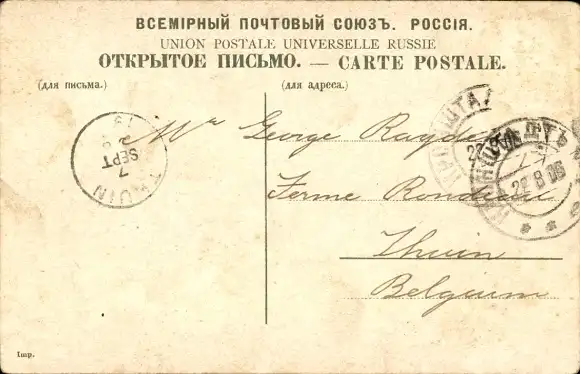 ВСЕМІРНЫЙ ПОЧТОВЫЙ СОЮЗЪ. РОССІЯ.
UNION POSTALE UNIVERSELLE RUSSIE
ОТКРЫТОЕ ПИСЬМО. — CARTE POSTALE.
(для письма.) (для адреса.)
Mr George
Ferme Rondeau
Thuin
Belgium
THUIN
7
SEPT
22 8 06
Imp.